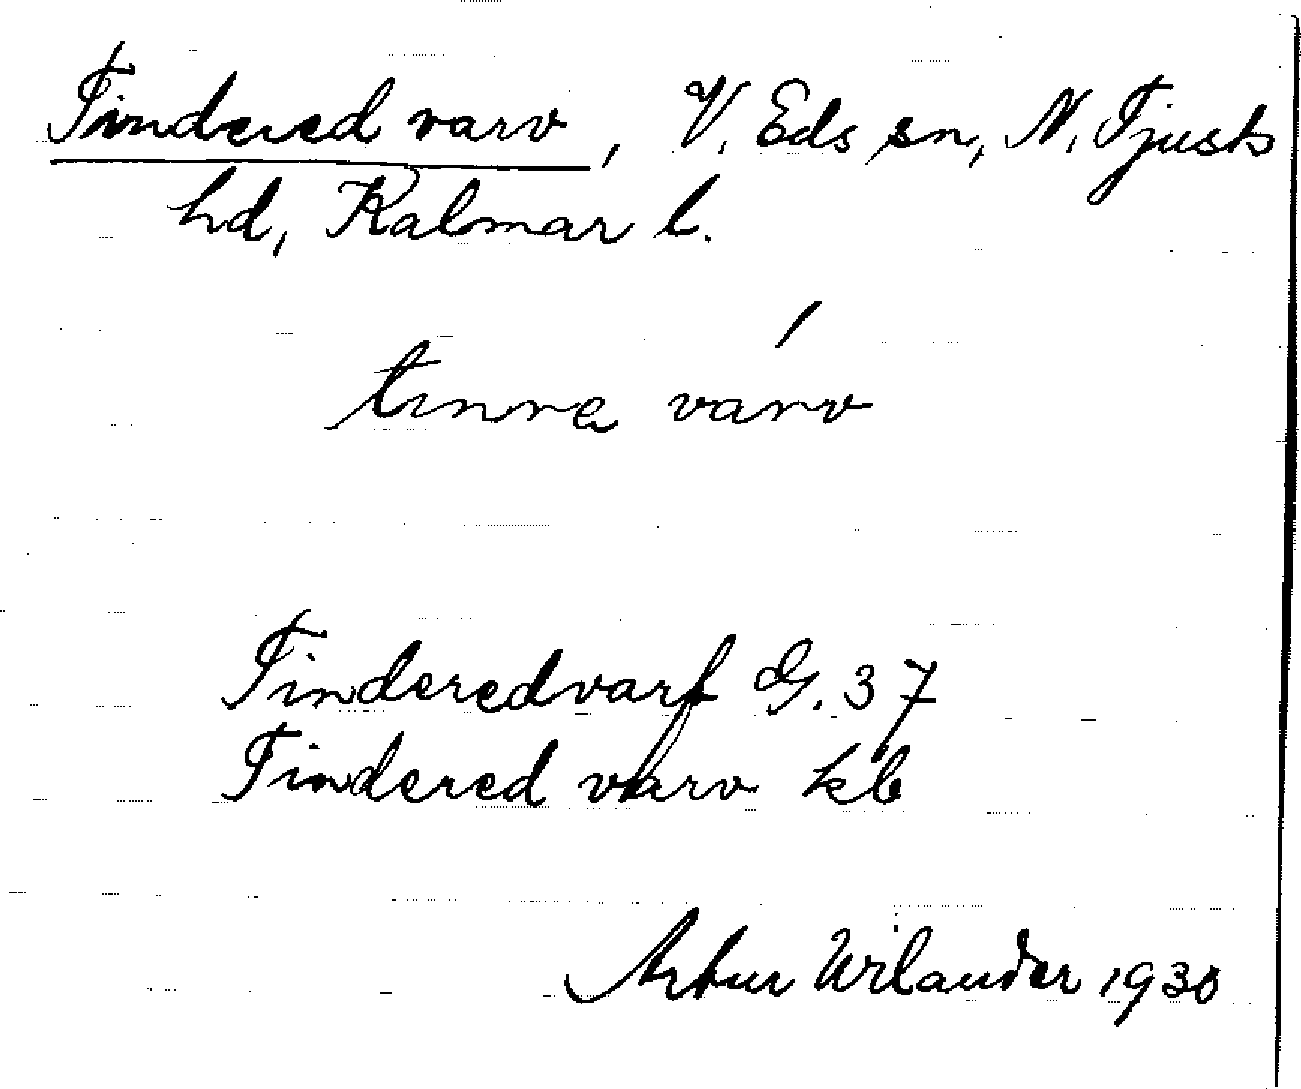 Tindered varv, V. Eds sn, N. Tjusts
hd, Kalmar l.
tınre varv
Tinderedvarf G. 37
Tindered varv kb
Artur Wilander 1930